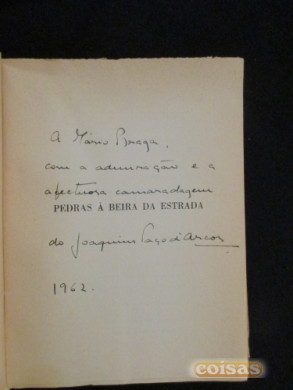 A Mário Braga,
com a admiração e a
afectuosa camaradagem
PEDRAS À BEIRA DA ESTRADA
do Joaquim Paço d'Arcos
1962.
coisas